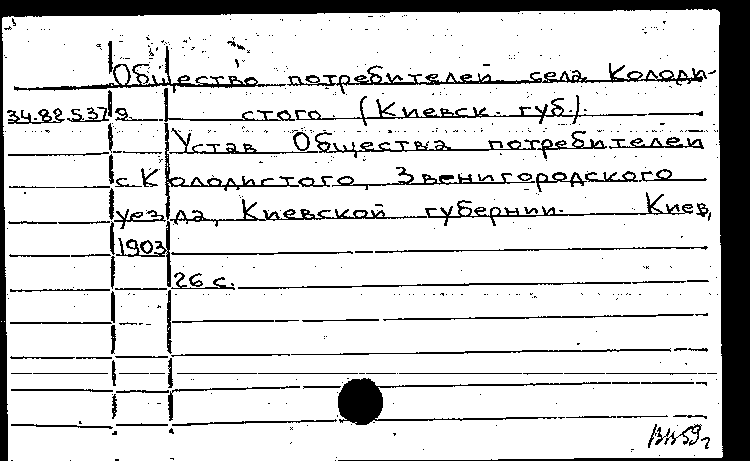 Общество потребителей села Колоди-
34.82.5.379. стого. (Киевск. губ.).
Устав Общества потребителей
с. Колодистого, Звенигородского
уезда, Киевской губернии. Киев,
1903
26 с.